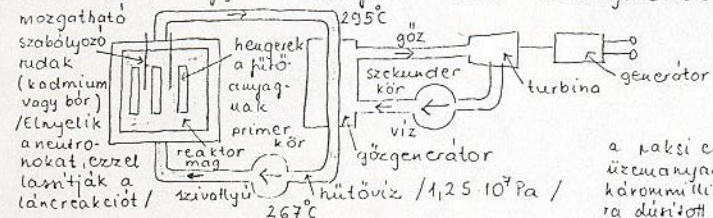 mozgatható
szabályozó
rudak
(kadmium
vagy bór)
/Elnyelik
a neutro-
nokat, ezzel
lassítják a
láncreakciót/
hengerek
a fűtő-
anyag-
nak
primer
kör
reaktor
mag
szivattyú
267°C
hűtővíz /1,25·10⁷Pa/
295°C
gőz
szekunder
kör
víz
gőzgenerátor
turbina
generátor
a paksi e
üzemanya
hárommilli
ra dúsított